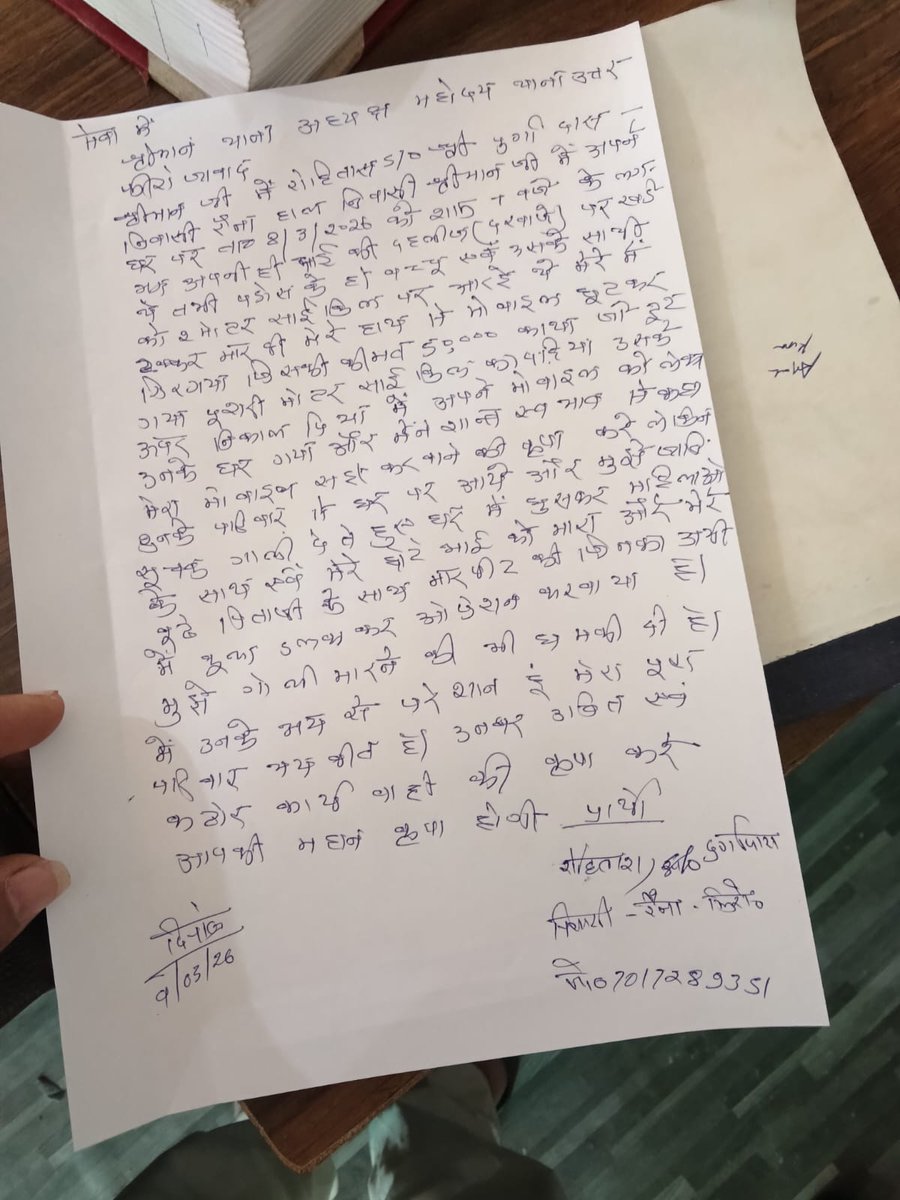 सेवा में
श्रीमान थाना अध्यक्ष महोदय थाना उत्तर
फीरोजावाद
श्रीमान जी में रोहितास S/O श्री दुर्गा दास
निवासी रैना हाल निवासी श्रीमान जी में अपने
घर पर ता० 8/3/2026 को शाम 7 वजे के लग-
भग अपनी ही भाई की दहलीज (दरवाजे) पर खडे
थे तभी पडोस के ही एवं उसके साथी
को 2 मोटर साईकिल पर आरहे थे मेरे में
टक्कर मार दी मेरे हाथ से मोवाइल छूट कर
गिर गया जिसकी कीमत 50,000 काथा जो टूट
गया दूसरी मोटर साईकिल उसके
उपर निकाल दिया में अपने मोवाइल को लेकर
उनके घर गया और मैंने शान्त स्वभाव से कहा
मेरा मोवाइल सही करवाने की कृपा करें लेकिन
उनके परिवार के घर पर आये और मुझे जाति
सूचक गाली देते हुए घर में घुसकर महिलाओ
के साथ एवं मेरे छोटे भाई को मारा और मेरे
बूढे पिताजी के साथ मारपीट की जिनका अभी
में ओप्रेशन करवाया है।
मुझे गोली मारने की भी धमकी दी है।
में उनके भय से परेशान हूं मेरा पूरा
परिवार भयभीत है। उनपर उचित एवं
कठोर कार्यवाही की कृपा करें
आपकी महान कृपा होगी प्रार्थी
रोहताश S/o दुर्गादास
निवासी - रैना - फिरो०
मो० 07017289351
दिनांक
9/03/26